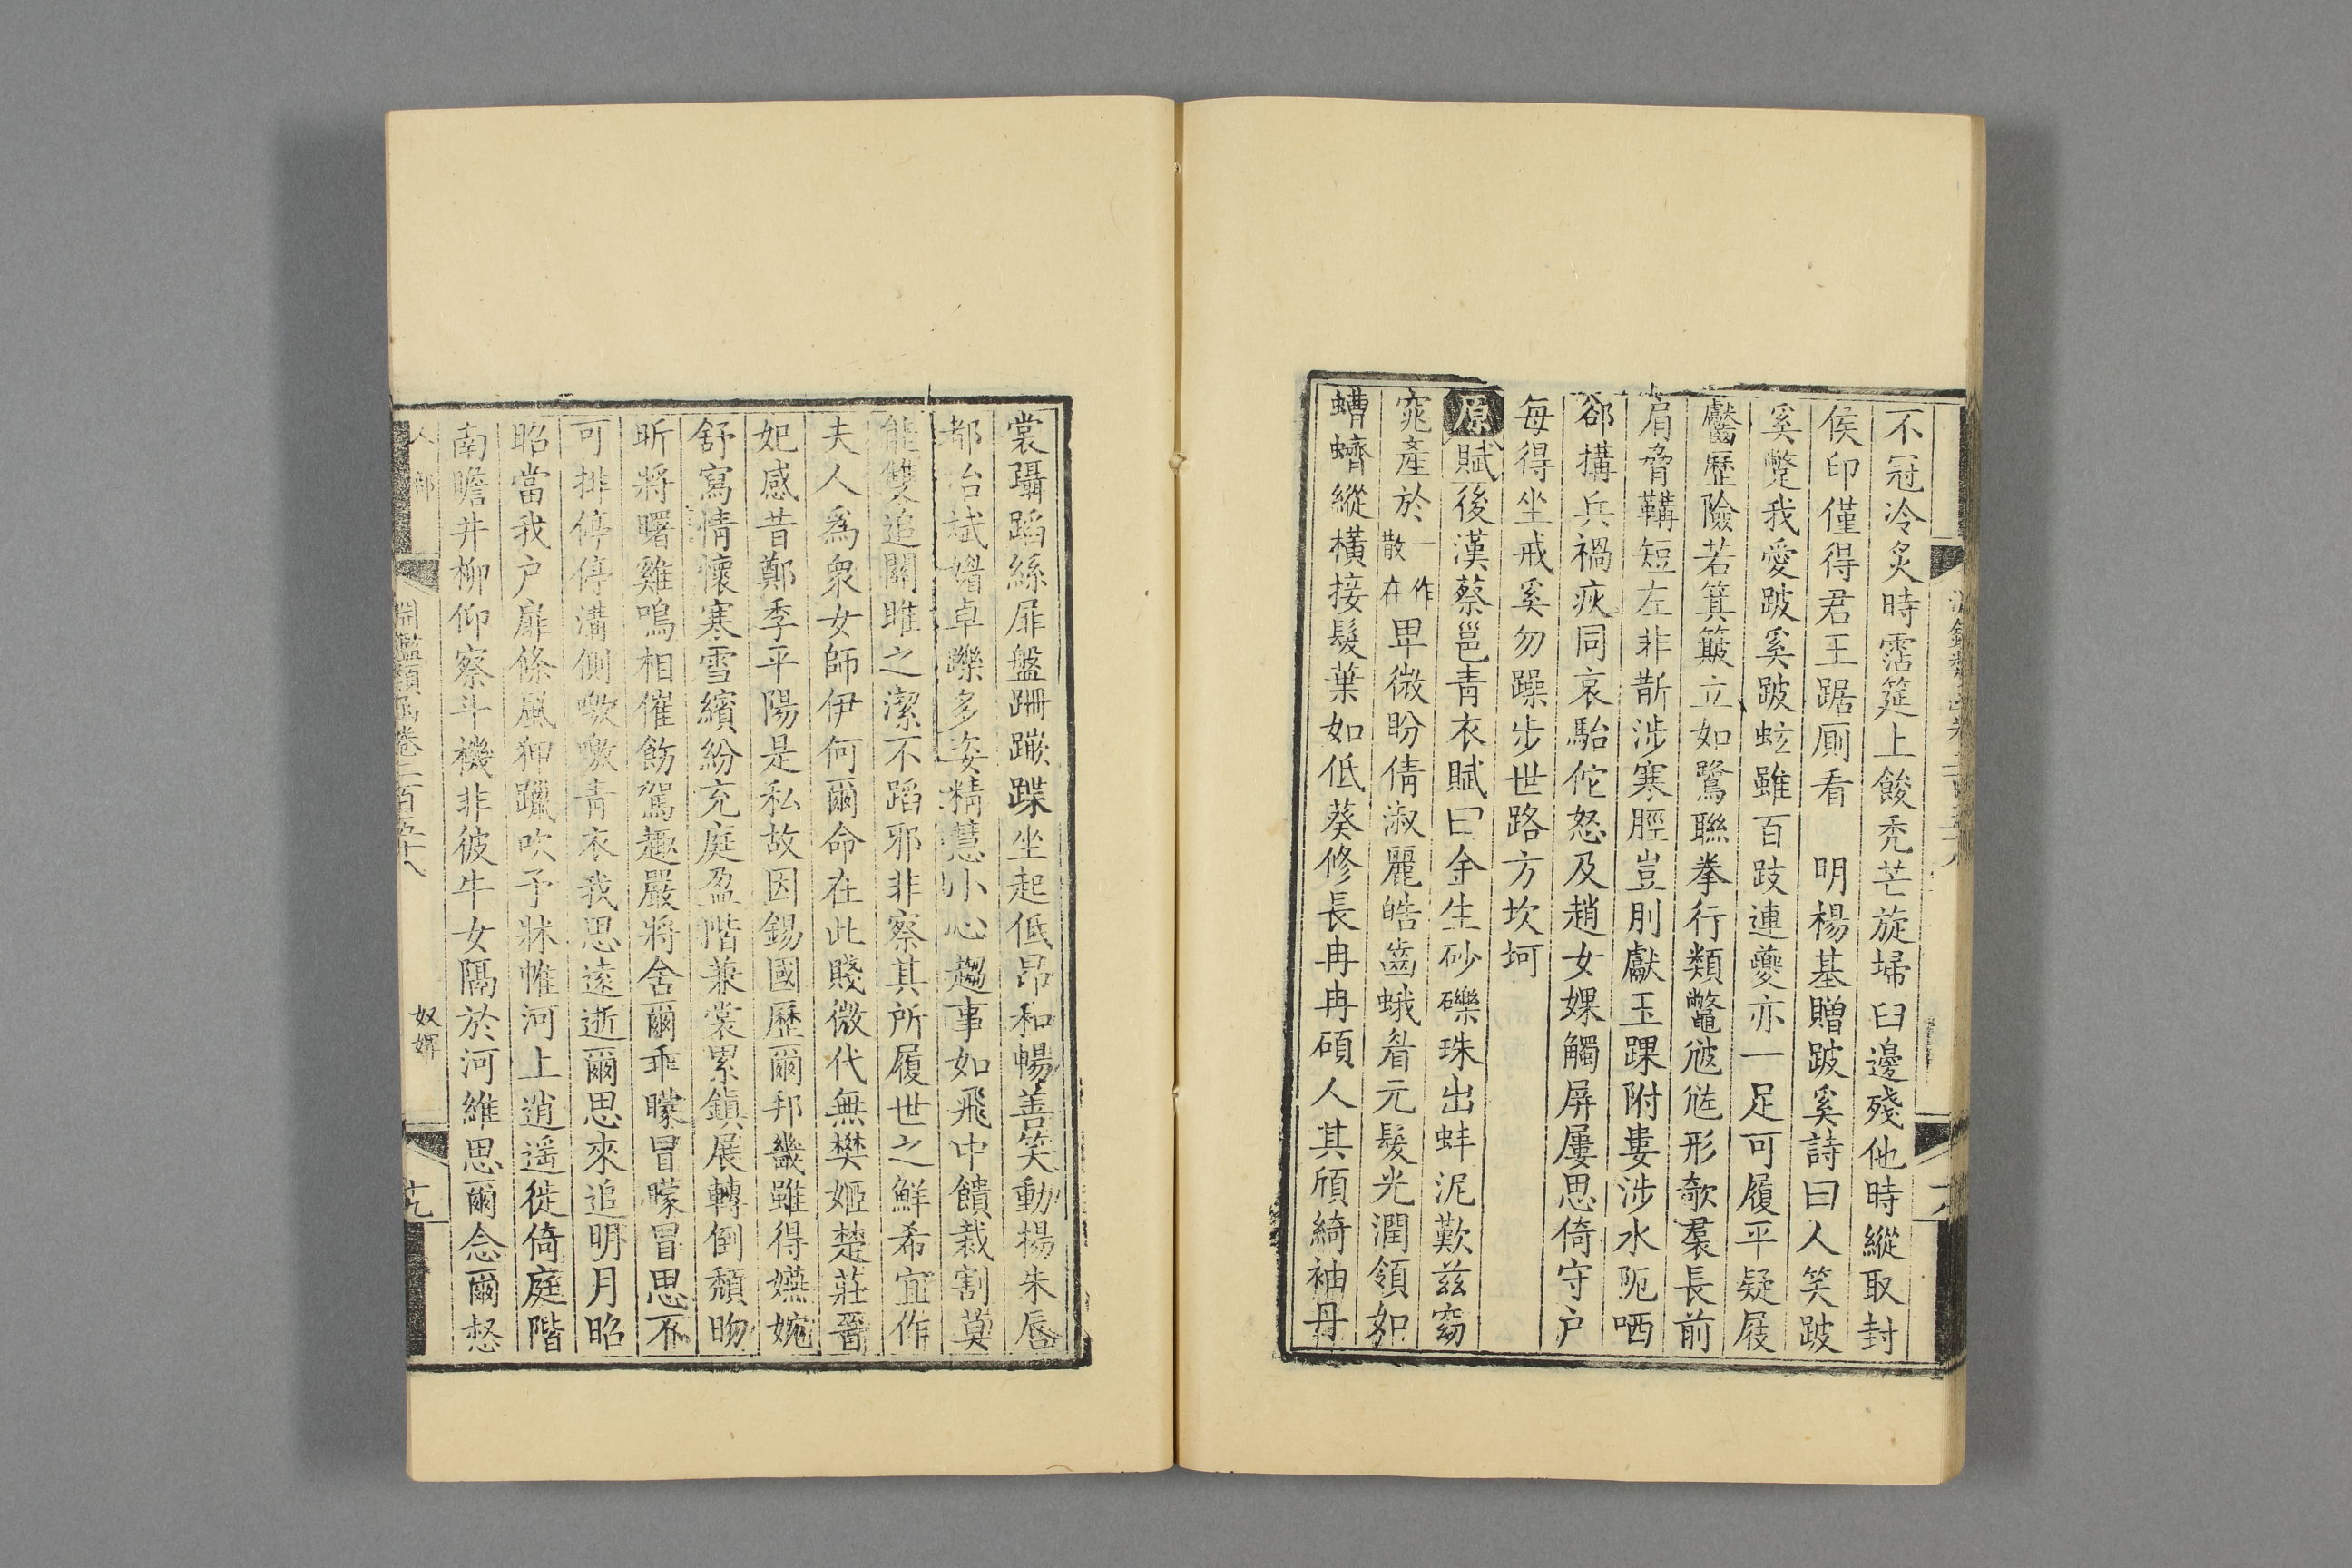 不冠冷炙時霑筵上餕禿芒旋埽臼邊殘他時縱取封
侯印僅得君王踞厠看　明楊基贈跛奚詩曰人笑跛
奚蹩我愛跛奚跛蚿雖百跂連夔亦一足可履平疑屐
齾歷險若箕簸立如鷺聯拳行類鼈𡯄𡯓形欹羣長前
肩脅鞲短左非斮涉寒脛豈刖獻玉踝附婁涉水阨哂
郤搆兵禍疢同哀駘佗怒及趙女婐觸屏屢思倚守户
每得坐戒奚勿躁步世路方坎坷
原賦後漢蔡邕青衣賦曰金生砂礫珠出蚌泥歎兹窈
窕產於一作散在卑微盼倩淑麗皓齒蛾眉元髮光潤領如
螬蠐縱橫接髮葉如低葵修長冉冉碩人其頎綺袖丹
裳躡蹈絲扉盤跚蹴蹀坐起低昂和暢善笑動揚朱脣
都冶斌媚卓躒多姿精慧小心趨事如飛中饋裁割莫
能雙追關雎之潔不蹈邪非察其所履世之鮮希宜作
夫人爲衆女師伊何爾命在此賤微代無樊姬楚莊晉
妃感昔鄭季平陽是私故因錫國歷爾邦畿雖得嬿婉
舒寫情懷寒雪繽紛充庭盈階兼裳累鎮展轉倒頹昒
昕將曙雞鳴相催飭駕趣嚴將舍爾乖矇冒矇冒思不
可排停停溝側噭噭青衣我思遠逝爾思來追明月昭
昭當我户扉條風狎躐吹予牀帷河上逍遥徙倚庭階
南瞻井柳仰察斗機非彼牛女隔於河維思爾念爾惄
人部
淵鑑類函卷二百五十八
奴婢
十九